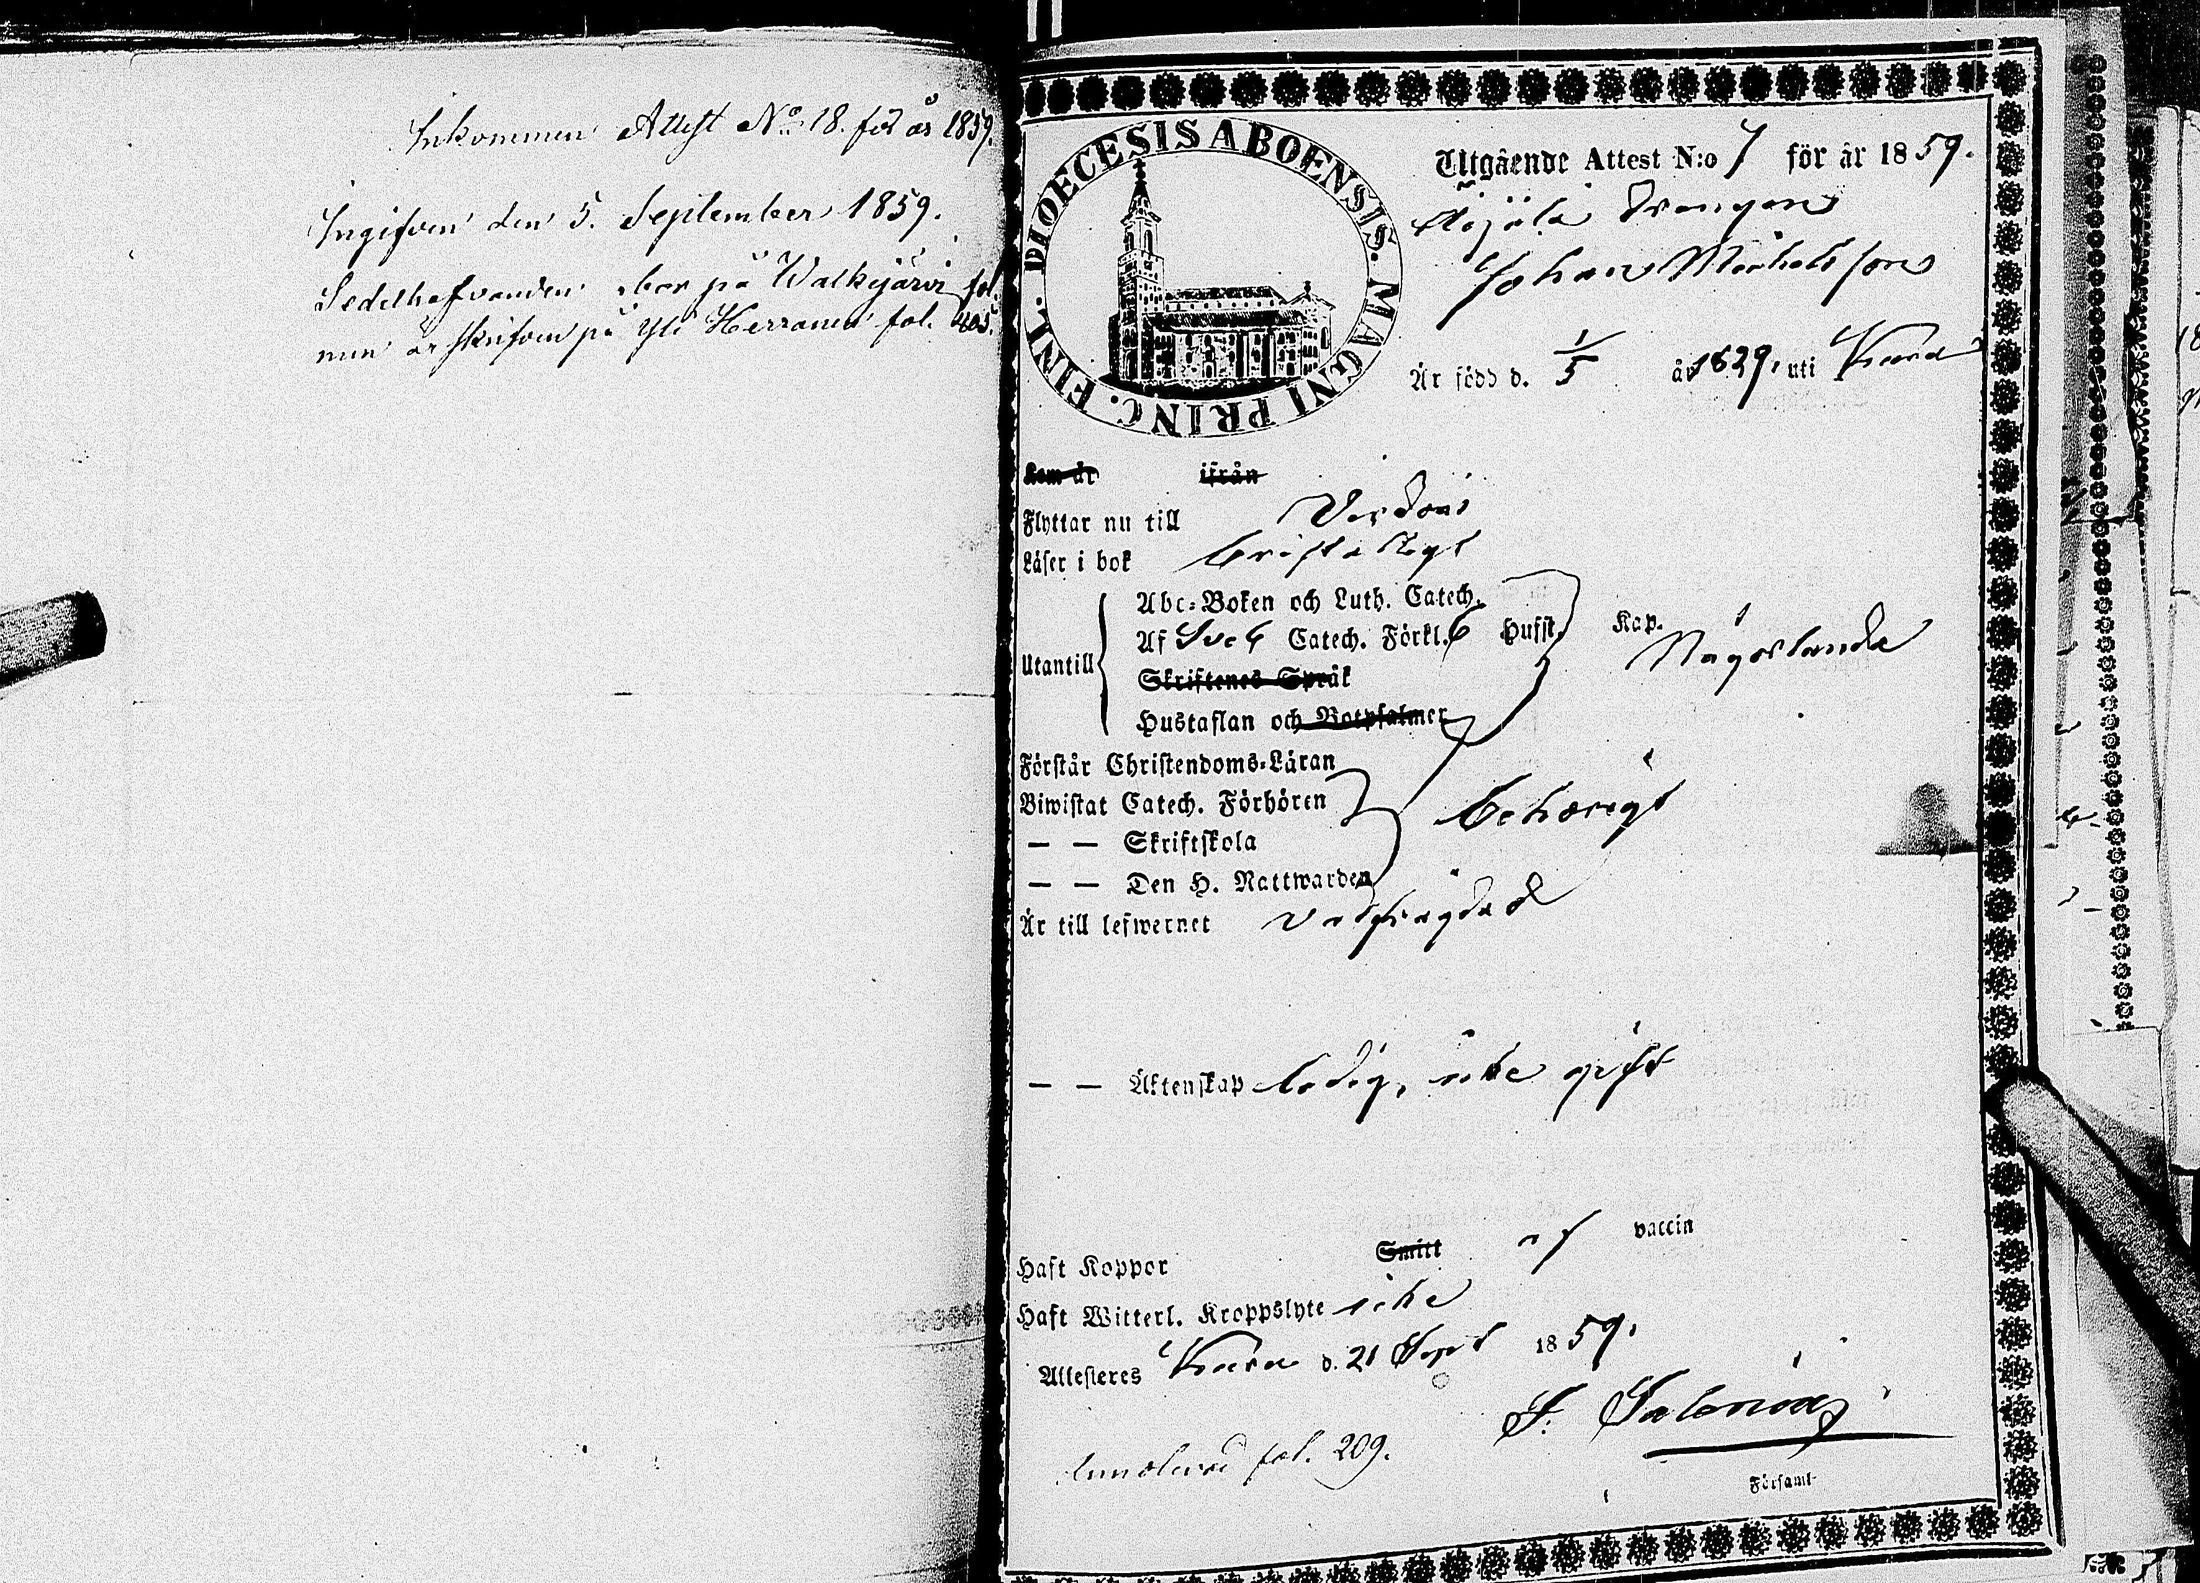 Inkommen Attest No 18. för år 1859.
Ingifven den 5. September 1859.
Sedelhafvanden bor på Walkijärvi fol.
men är skrifven på Yli Herranen fol. 405.
DIOECESIS ABOENSIS. MAGNI PRINC. FINL.
Utgående Attest N:o 7 för år 1859.
Drängen
Johan Michelsson
Är född d. 1/5 år 1829, uti
Kom år ifrån
Flyttar nu till Virdois
Läser i bok
Abc-Boken och Luth. Catech.
Af Sveb Catech. Förkl. 6 Hufst. Kap.
Utantill Någorlunda
Skriftenes Språk
Hustaflan och Botpsalmer
Förstår Christendoms-Läran
Biwistat Catech. Förhören behörigt
— — Skriftskola
— — Den H. Nattwarden
Är till lefwernet välfrägdad
— — Äktenskap ledig, icke gift
Haft Koppor Smitt af vaccin
Haft Witterl. Kroppslyte icke
Attesteres d. 21 Sept 1859.
fol. 209.
Församl